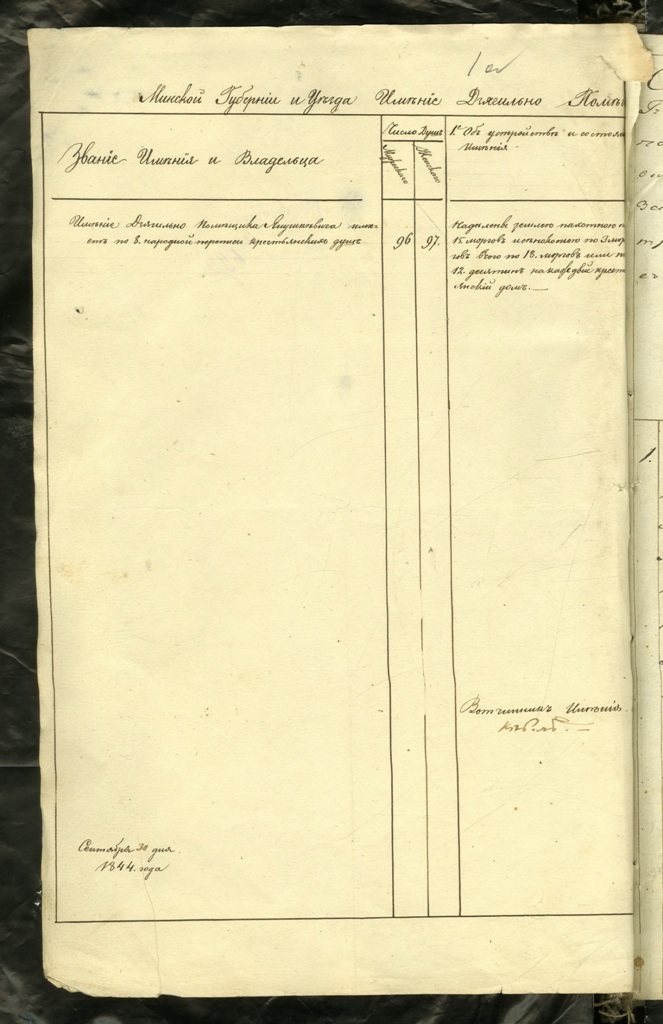 Минской Губерніи и Уѣзда Имѣніе Дягильно Помѣщ
Званіе Имѣнія и Владельца
Число Душъ
Мужескаго
Женскаго
1е Объ устройствѣ и состоян
Имѣнія
Имѣніе Дягильно помѣщика Янушкевича имѣ-
етъ по 8. народной переписи крестьянскихъ душъ
96
97.
Надѣленъ землею пахотного п
15 морговъ и сѣнокосного по 3 мор
говъ всего по 18. морговъ или по
12. десятинъ на каждый крест
янскій домъ.
Вотчинникъ Имѣнія
Сентября 30 дня
1844. года
1.